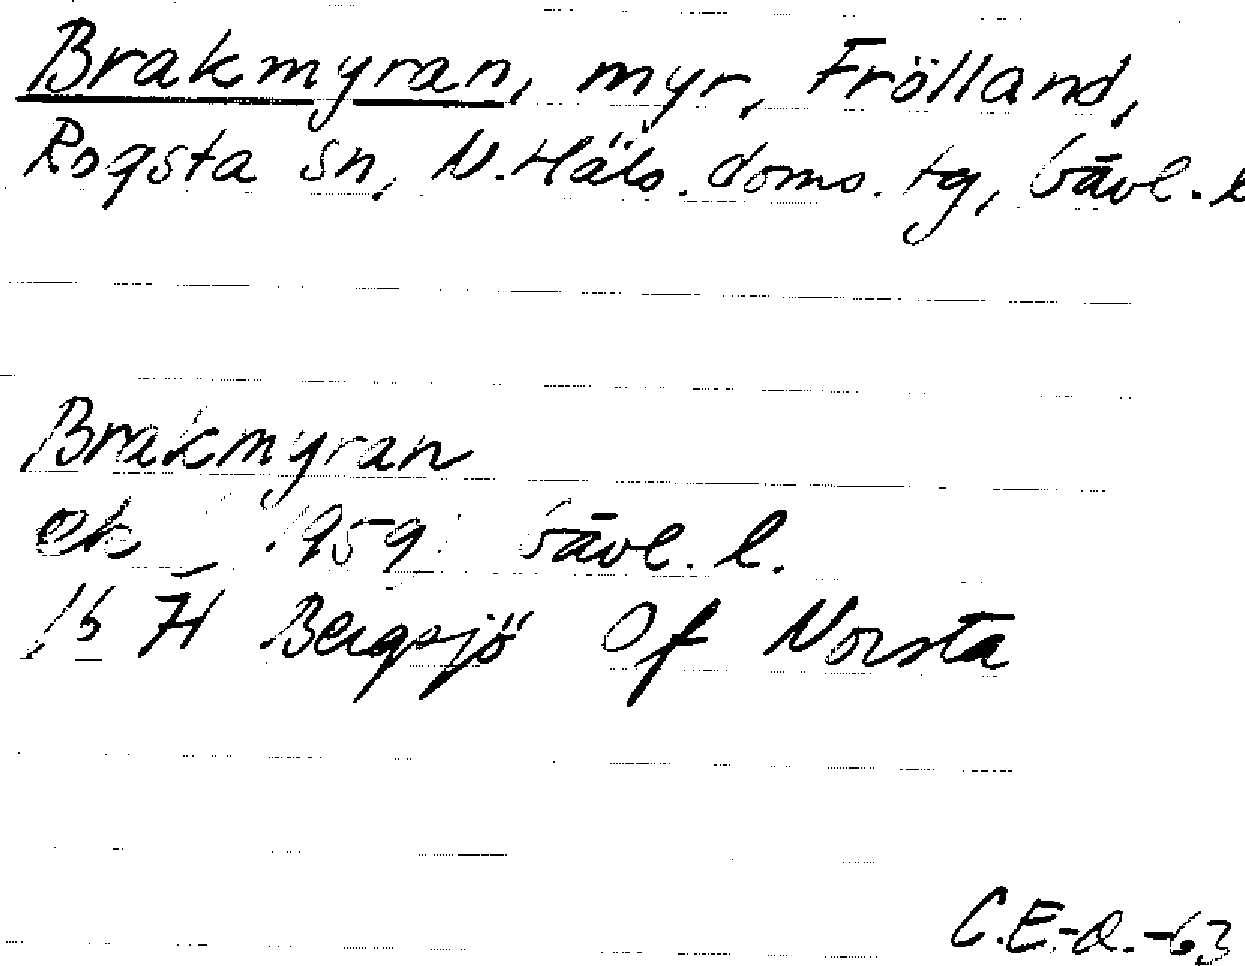 Brakmyran, myr, Frölland,
Rogsta sn, N. Häls. doms. tg, Gävl. l
Brakmyran
ek 1959 Gävl. l.
16 H Bergsjö Of Norsta
C.E-d.-63